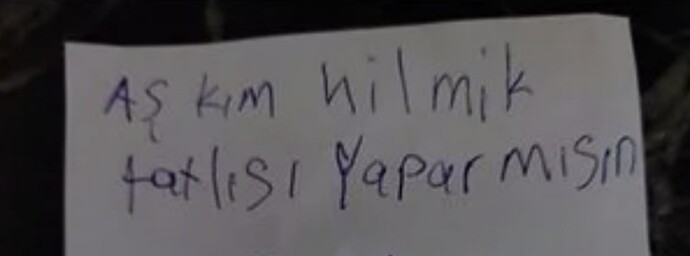 AŞKIM hilmik
tatlısı YaparmıSın